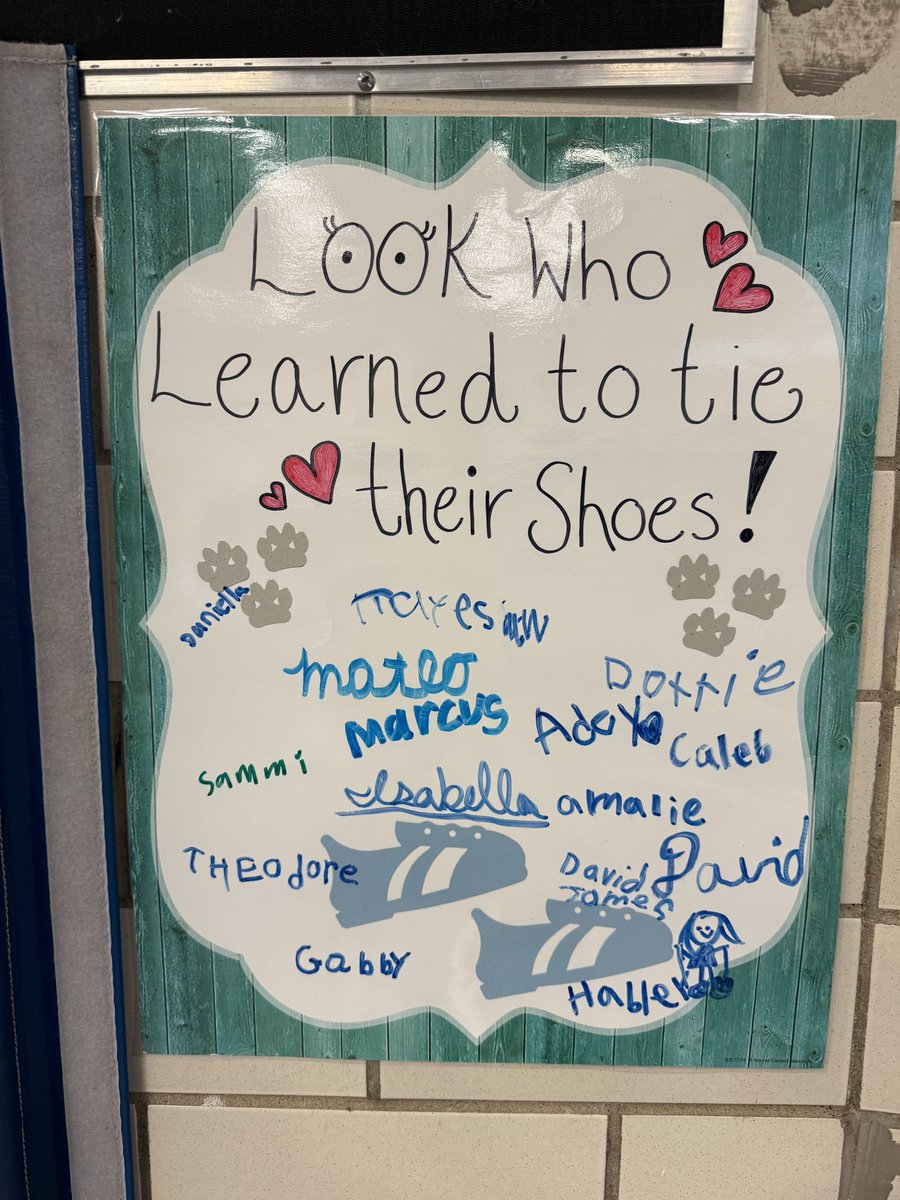 LOOK Who
Learned to tie
their Shoes!
Daniella
Hayes
mateo
Dottie
Marcus
Caleb
sammi
Isabella
amalie
THEOdore
David
David
James
Gabby